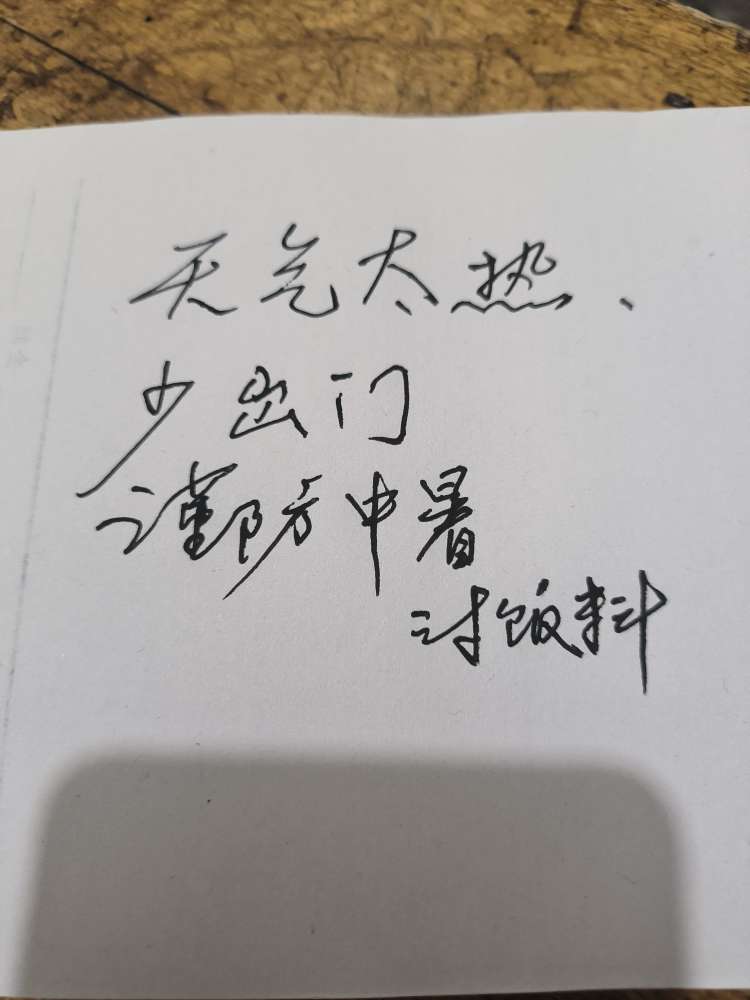 天气太热、
少出门
谨防中暑
讨饭料